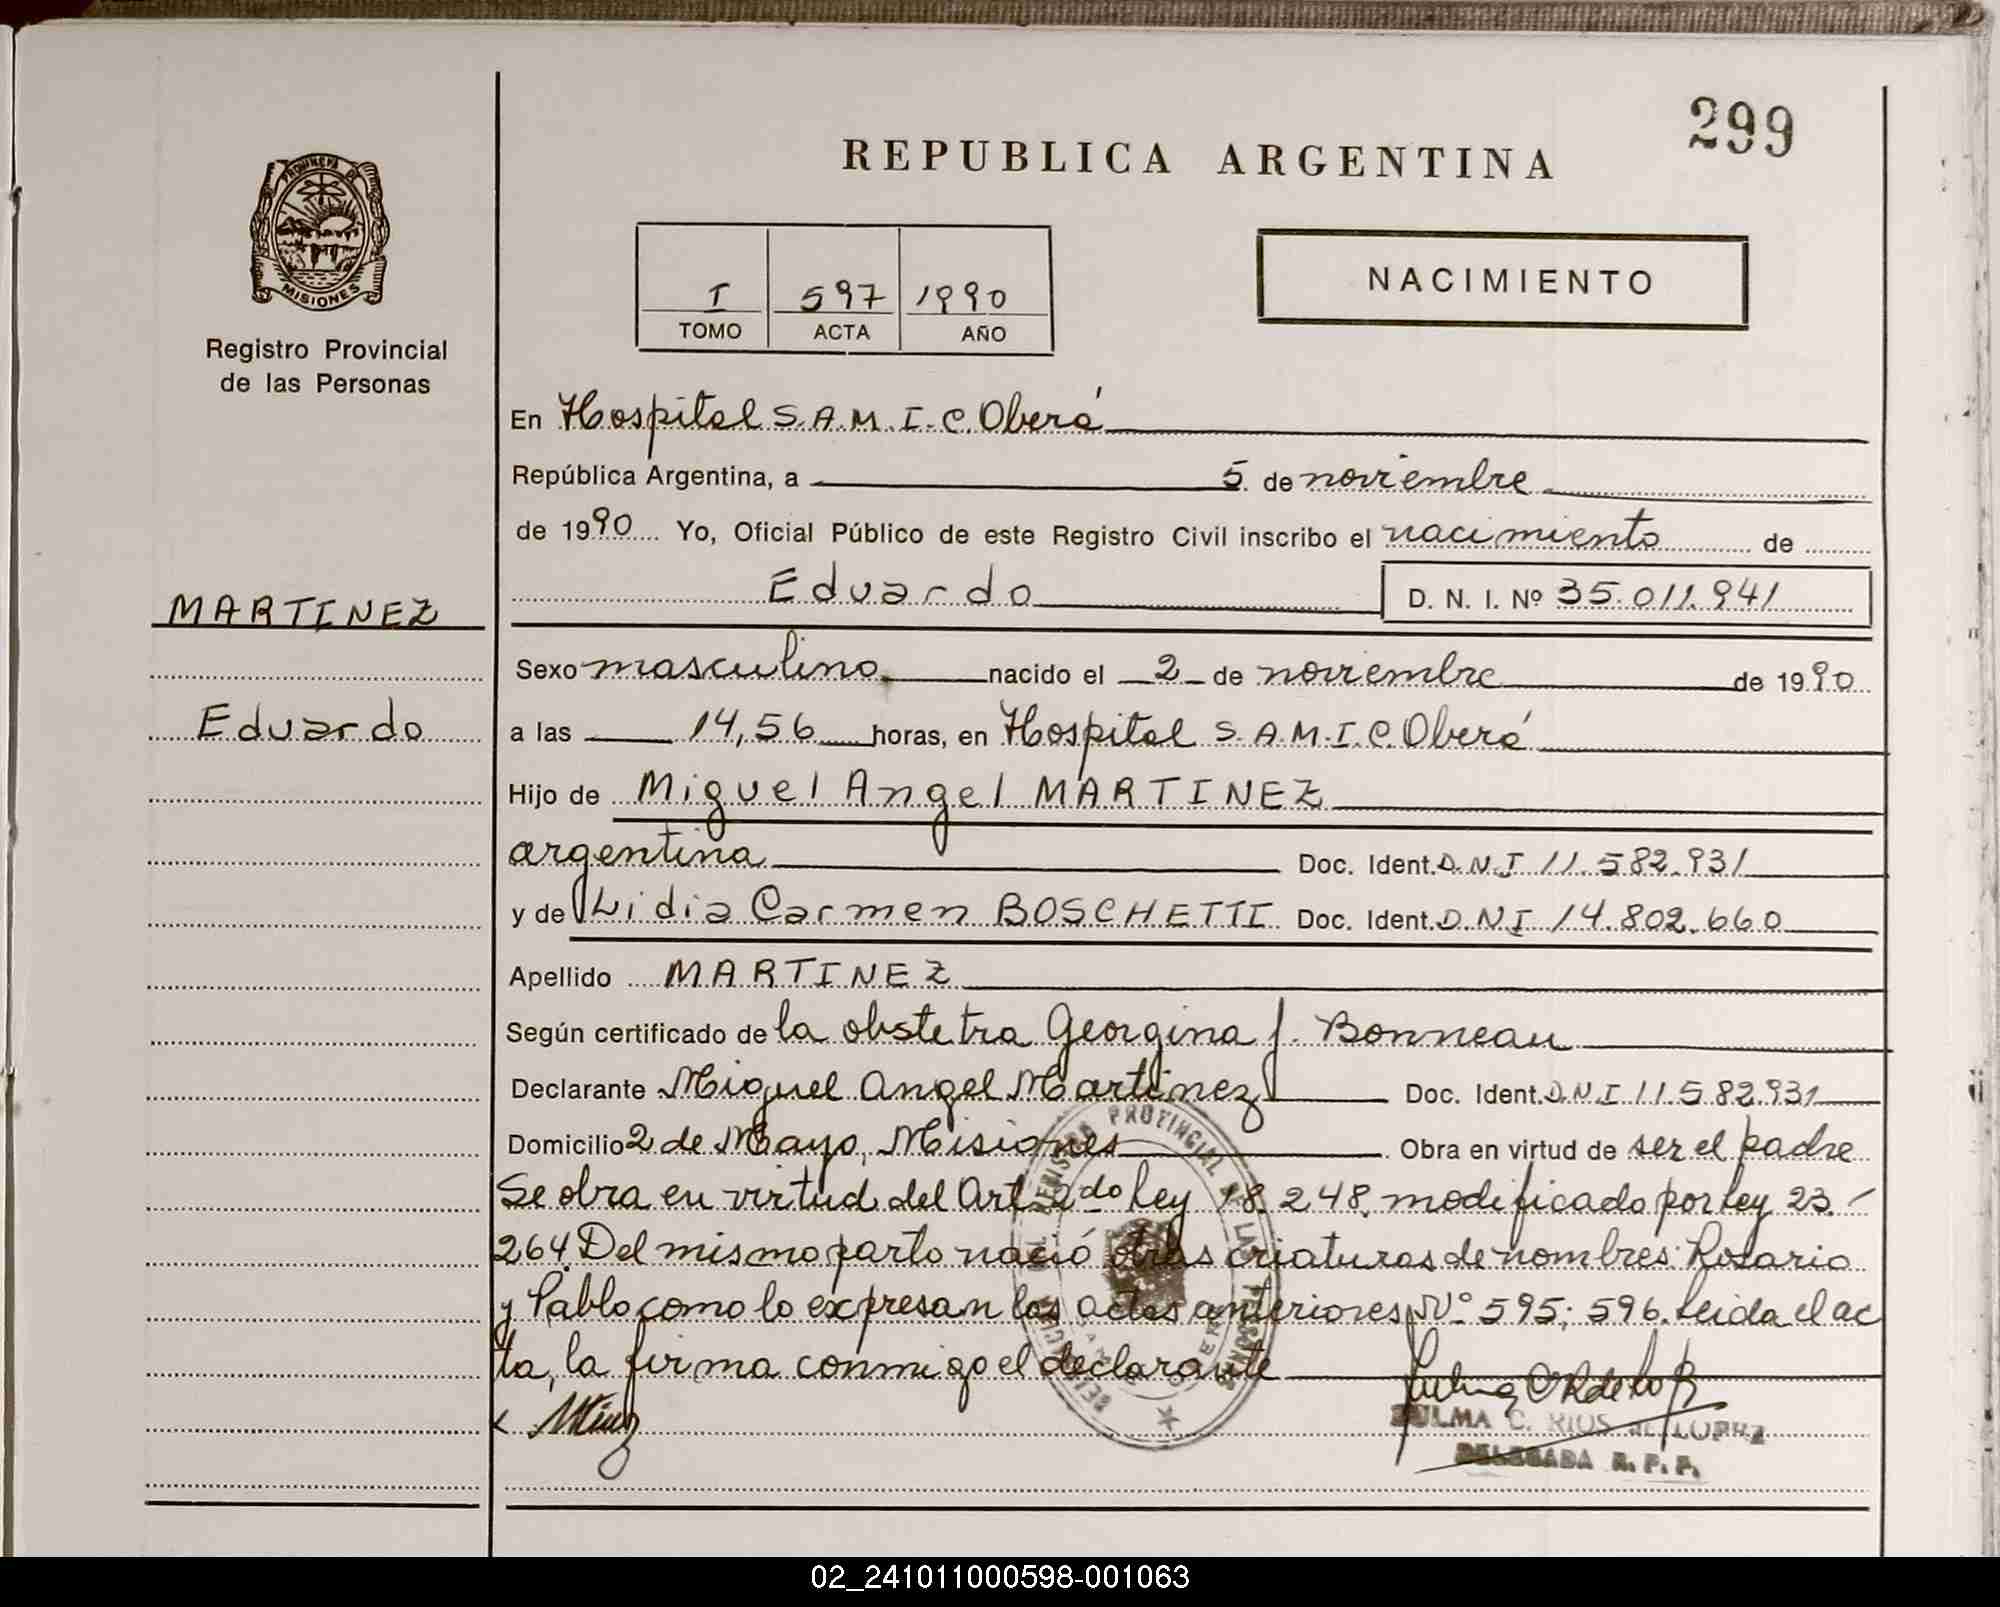 299
REPUBLICA ARGENTINA
PROVINCIA DE
MISIONES
Registro Provincial
de las Personas
I 597 1990
TOMO ACTA AÑO
NACIMIENTO
En Hospital S.A.M.I.C. Oberá
República Argentina, a 5 de noviembre
de 1990 Yo, Oficial Público de este Registro Civil inscribo el nacimiento de
Eduardo D. N. I. Nº 35.011.941
MARTINEZ
Eduardo
Sexo masculino nacido el 2 de noviembre de 1990
a las 14,56 horas, en Hospital S.A.M.I.C. Oberá
Hijo de Miguel Angel MARTINEZ
argentina Doc. Ident. D.N.I 11.582.931
y de Lidia Carmen BOSCHETTI Doc. Ident. D.N.I 14.802.660
Apellido MARTINEZ
Según certificado de la obstetra Georgina J. Bonneau
Declarante Miguel Angel Martinez Doc. Ident. D.N.I 11.582.931
Domicilio 2 de Mayo, Misiones. Obra en virtud de ser el padre
Se obra en virtud del Art. 2do Ley 18.248, modificado por ley 23.
264. Del mismo parto nació otras criaturas de nombres: Rosario
y Pablo como lo expresan las actas anteriores Nº 595; 596. Leida el ac
ta, la firma conmigo el declarante
REGISTRO PROVINCIAL DE LAS PERSONAS
ZULMA C. RIOS de LOPEZ
DELEGADA R. P. P.
02_241011000598-001063